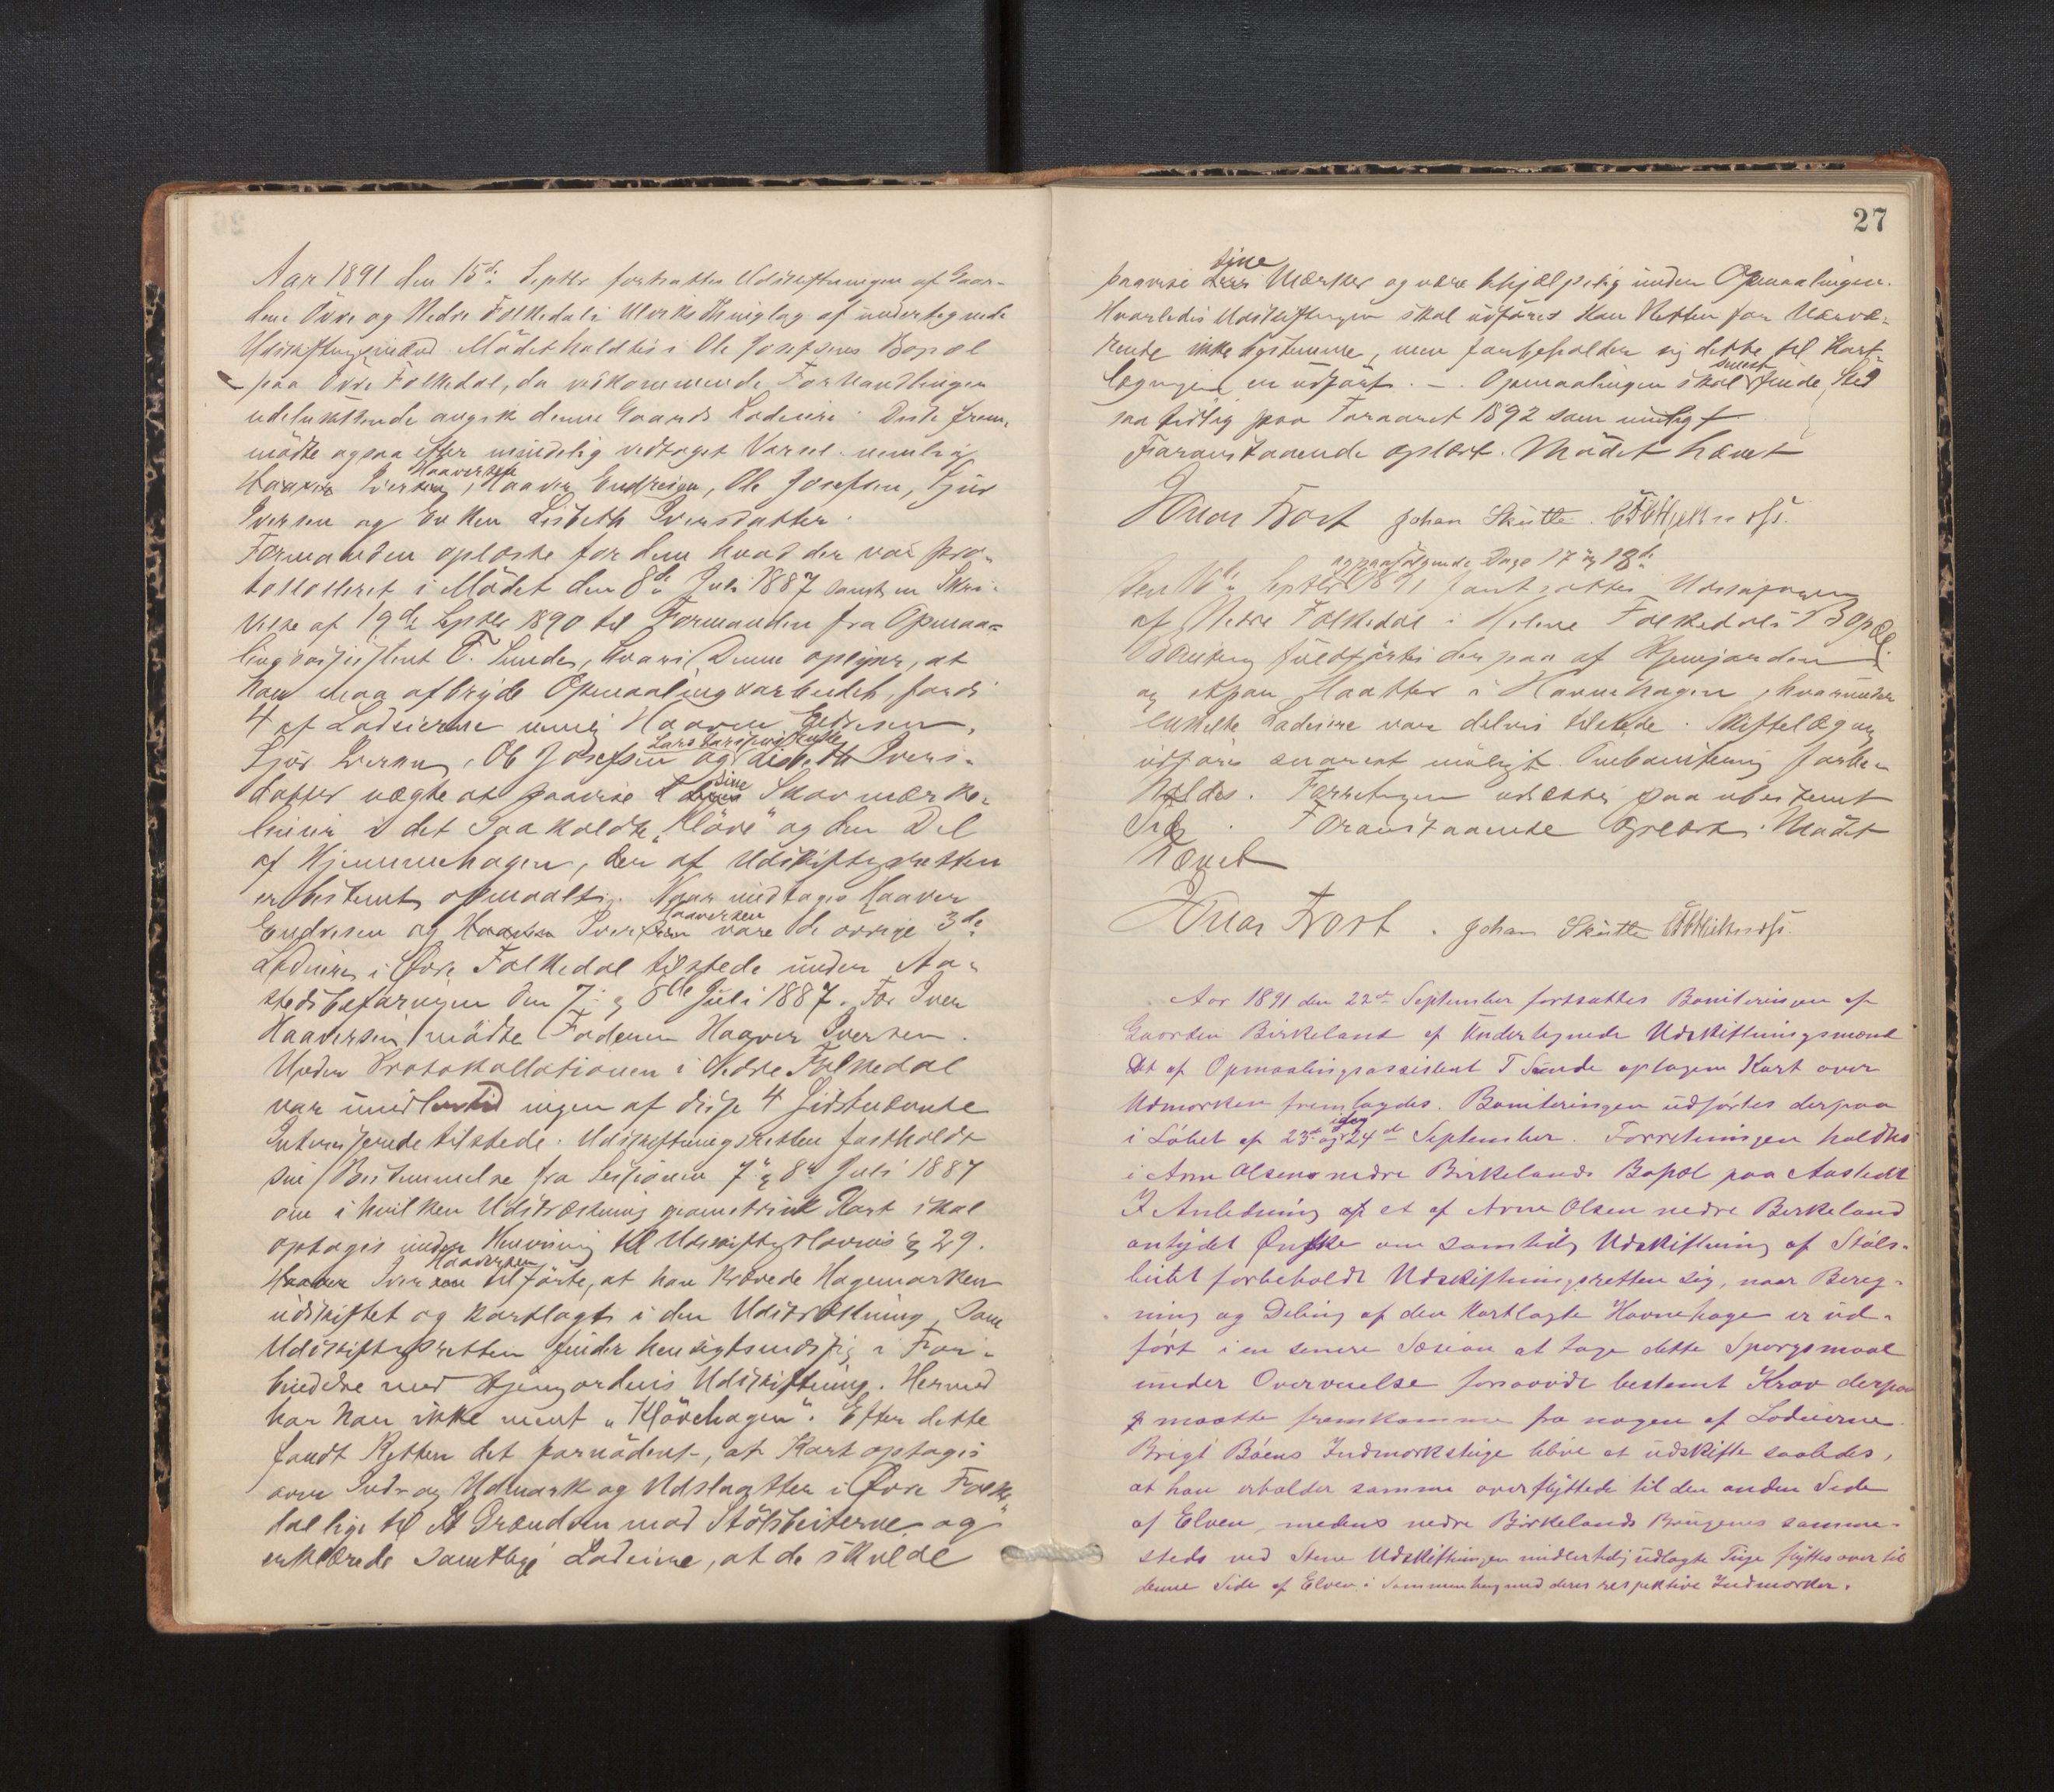 Aar 1891 den 15de Septbr fortsattes Udskiftningen af Gaar-
dene Övre og Nedre Folkedal i Ulviks Thinglag af undertegnede
Udskiftningsmænd. Mödet holdtes i Ole Josefsens Bopæl
paa Övre Folkedal, da vedkommende Forhandlinger
udelukkende angik denne Gaards Lodeiere. Disse frem-
mödte ogsaa efter mindelig vedtaget Varsel nemlig
Haaver Iversen, Haaversen Haaver Endresen, Ole Josefsen, Sjur
Iversen og Enken Lisbeth Iversdatter.
Formanden oplæste for dem hvad der var pro-
tokolleret i Mödet den 8de Juli 1887 samt en Skri-
velse af 19de Septbr 1890 til Formanden fra Opmaa-
lingsassistent T. Sunde, hvori Denne oplyser, at
han maa afbryde Opmaalingsarbeidet, fordi
4 af Lodeierne nemlig Haaver Endresen,
Sjur Iversen, Ole Josefsen og Lars Larsens Enke Lisbeth Ivers-
datter nægte at paavise sine Skov mærke-
linier i det saakaldte "Klöve" og den Del
af Hjemmehagen, der af Udskiftningsretten
er bestemt opmaalt. Naar undtages Haaver
Endresen og Iver Haaversen vare de övrige 3de
Lodeiere i Övre Folkedal tilstede under Aa-
stedsbefaringen den 7de og 8de Juli 1887. For Iver
Haaversen mödte Faderen Haaver Iversen.
Under Protokollationen i Nedre Folkedal
var imidlertid ingen af disse 4 sidstnævnte
Interesserede tilstede. Udskiftningsretten fastholdt
sin Bestemmelse fra Sessionen 7de & 8de Juli 1887
om i hvilken Udstrækning geometrisk Kart skal
optages under Henvisning til Udskiftngslovens § 29.
Iver Haaversen tilförte, at han krævede Hagemarken
udskiftet og kartlagt i den Udstrækning, som
Udskiftngsretten finder hensigtsmæssig i For-
bindelse med Hjemjordens Udskiftning. Hermed
har han ikke ment "Klövehagen". Efter dette
fandt Retten det fornödent, at Kart optages
over Ind- og Udmark og Udslaatter i Övre Folke-
dal lige til Grændsen mod Stölsbeiterne og
erklærede samtlige Lodeiere, at de skulde
27
paavise sine Mærker og være behjælpelig under Opmaalingen.
Hvorledes Udskiftningen skal udföres kan Retten for Nærvæ-
rende ikke bestemme, men forbeholder sig dette til Kart-
lægningen er udfört. - Opmaalingen skal senest finde Sted
saa tidlig paa Foraaret 1892 som muligt
Foranstaaende oplæst. Mödet hævet
Knar Frost Johan Skutle.
og paafölgende Dage 17 og 18de
Den 16de Septbr 1891 fortsattes Udskiftningen
af Nedre Folkedal i Helene Folkedals Bopæl.
Bonitering fuldförtes derpaa af Hjemjorden
og Slaatter i Havnehagen, hvorunder
enkelte Lodeiere vare delvis tilstede. Skiftelægning
udföres snarest muligt. Ombonitering forbe-
holdes. Forretningen udsættes paa ubestemt
Tid. Foranstaaende oplæst. Mödet
hævet
Knar Frost. Johan Skutle
Aar 1891 den 22de September fortsattes Boniteringen af
Gaarden Birkeland af Undertegnede Udskiftningsmænd
Det af Opmaalingsassistent T Sunde optagne Kart over
Udmarken fremlagdes. Boniteringen udförtes derpaa
i Löbet af 23de og 24de September. Forretningen holdtes
i Arne Olsens nedre Birkelands Bopæl paa Aastedet
I Anledning af et af Arne Olsen nedre Birkeland
antydet Önske om samtidig Udskiftning af Stöls-
beitet forbeholdt Udskiftningsretten sig, naar Bereg-
ning og Deling af den kartlagte Havnehage er ud-
fört i en senere Session at tage dette Spørgsmaal
under Overveielse forsaavidt bestemt Krav derpaa
maatte fremkomme fra nogen af Lodeierne.
Brigt Böens Indmarksteige blive at udskifte saaledes,
at han erholder samme overflyttede til den anden Side
af Elven, medens nedre Birkelands Brugenes samme-
steds ved Stene Udskiftningen midlertidig udlagte Teige flyttes over til
denne Side af Elven i Sammenhæng med deres respektive Indmarker.